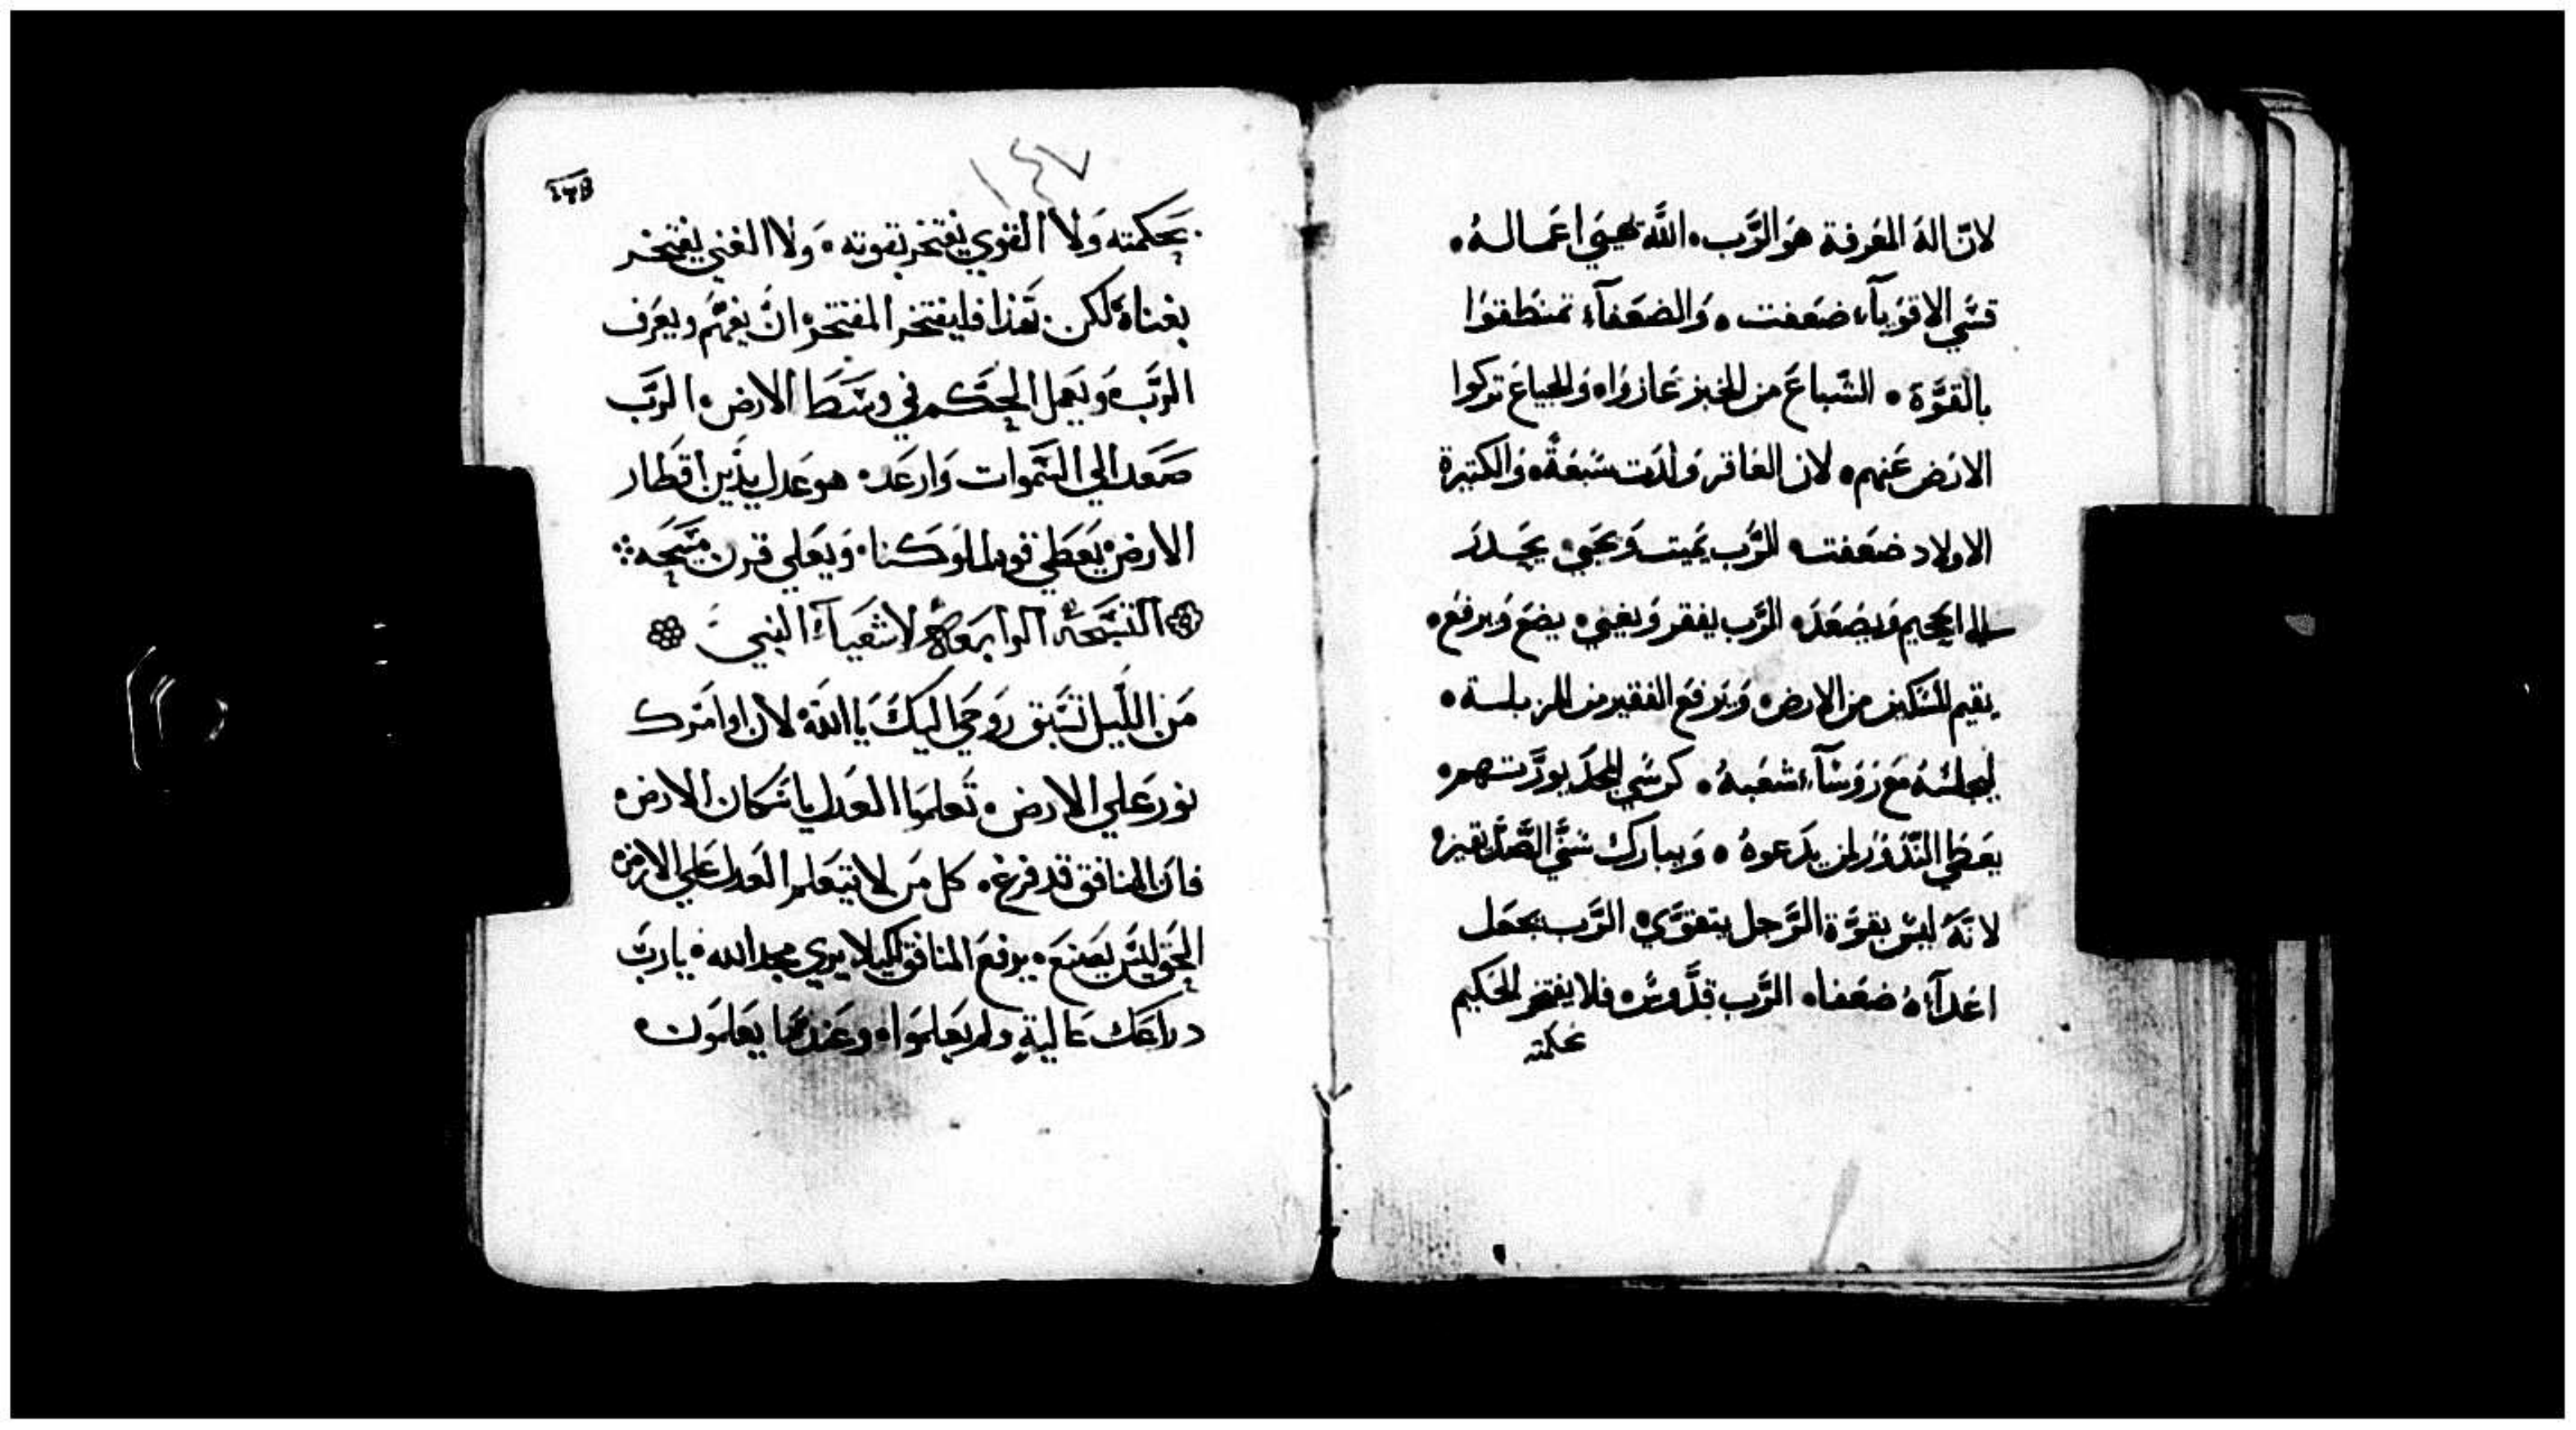 لانّ اله المعرفة هو الرَّب • اللَّه يهيي اعماله •
قسّي الاقويآء ضعفت • والضعفآء تمنطقوا
بالقوَّة • الشّباعَ من الخبز عازوا • والجياع تركوا
الارض عنهم • لان العاقر ولدت سبعةً • والكثيرة
الاولاد ضعفت • الرَّب يميت ويحيي • يحدر
الي الجحيم ويصعد • الرَّب يفقر ويغني • يضع ويرفع •
يقيم المسكين من الارض • ويرفع الفقير من المزبلة •
ليجلسه مع روسآء شعبه • كرسّي المجد يورّثهم •
يعطي النّذور لمن يدعوه • ويبارك سنّي الصّدّيقين •
لانّه ليس بقوَّة الرَّجل يتقوَّي • الرَّب يجعل
اعدآءه ضعفاء • الرَّب قدَّوس • فلا يفتخر الحكيم
بحكمته
١٤٧
بحكمته ولا القوي يفتخر بقوته • ولا الغني يفتخر
بغناه • لكن بهذا فليفتخر المفتخر • ان يفهم ويعرف
الرَّب • ويعمل الحكم في وسط الارض • الرَّب
صعد الي السَّموات وارعد • هو عدل يدين اقطار
الارض • يعطي قوه لملوكنا • ويعلي قرن مسيحه
التسبحة الرابعة لاشعيآء النبي
من اللّيل تسبق روحي اليك يا اللّه • لان اوامرك
نور علي الارض • تعلموا العدل يا سكان الارض •
فان المنافق قد فرغ • كل من لا يتعلم العدل علي الارض •
الحق ليس يصنع • يرفع المنافق لكيلا يري مجد الله • يا ربّ
دراعك عالية ولم يعلموا • وعندما يعلمون •